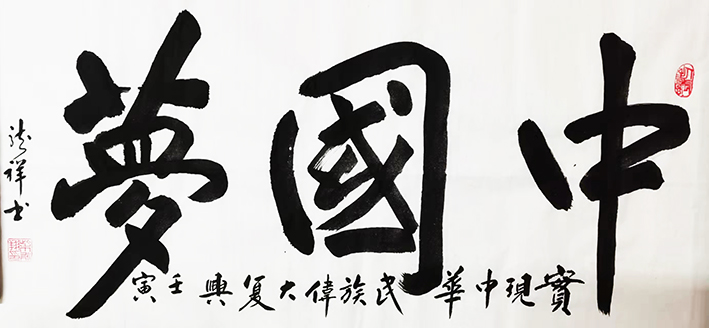 中國夢
實現中華民族偉大复興 壬寅
祥书